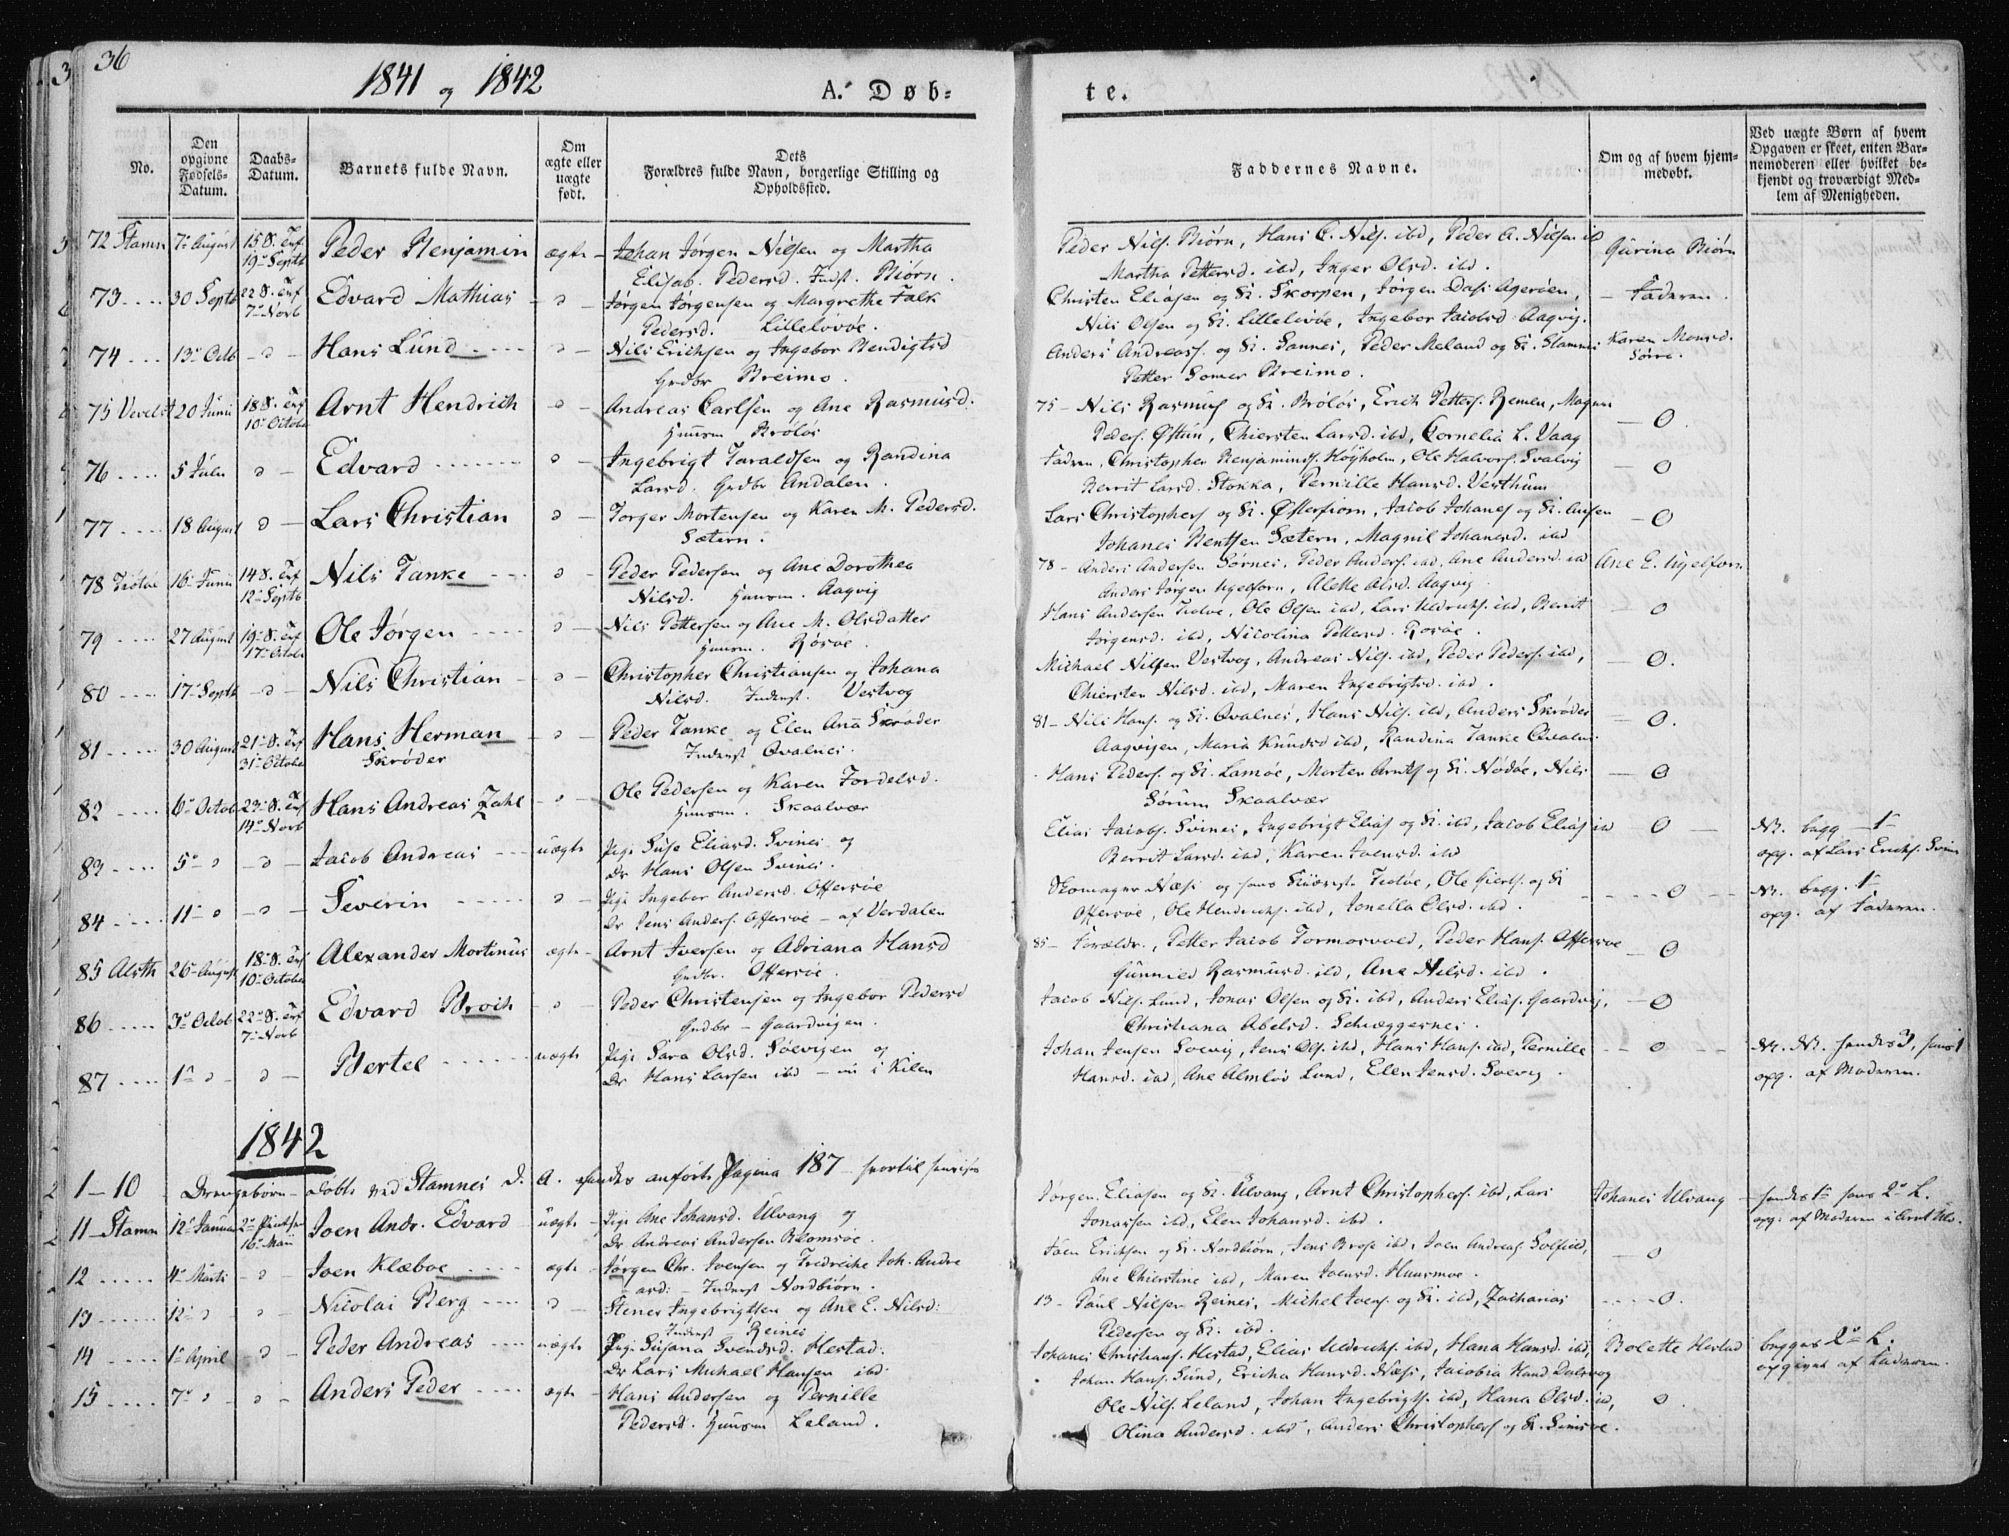 36
1841 og 1842
A. Døb-
te.
No.
Den opgivne Fødsels-Datum.
Daabs-Datum.
Barnets fulde Navn.
Om ægte eller uægte født.
Dets Forældres fulde Navn, borgerlige Stilling og Opholdssted.
Faddernes Navne.
Om og af hvem hjem-
medøbt.
Ved uægte Børn af hvem
Opgaven er skeet, enten Bar-
nemoderen eller hvilket be-
kjendt og troværdigt Med-
lem af Menigheden.
72 Stamn 7 August 15 S. Trf 19 Septb Peder Benjamin ægte Johan Jørgen Nilsen og Martha
Elisab. Pedersd. Indst. Biørn.
Peder Nils. Biørn, Hans C. Nils. ibd, Peder A. Nilsen ib
Martha Pettersd. ibd, Inger Olsd. ibd.
Gurina Biørn
73 30 Septb 22 S. Trf 7 Novb Edvard Mathias Jørgen Jørgensen og Margrethe Falk
Pedersd. Lilleløvøe.
Christen Eliasen og H. Skorpen, Jørgen Dass Agerøen,
Nils Olsen og H. Lilleløvøe, Ingebor Jacobsd Aagvig.
Faderen.
74 13 Octb Hans Lund Nils Erichsen og Ingebor Bendigtsd
Grdbr Breimo.
Anders Andreass. og H. Sannes, Peder Meland og H. Stamnes
Petter Somer Breimo.
Karen Monsd.
75 Vevelst 20 Junii 18 S. Trf 10 Octobr Arnt Hendrich Andreas Carlsen og Ane Rasmusd.
Huusm Brøløs
75 - Nils Rasmus og H. Brøløs, Erich Petters. Remen, Magnu
Peders. Østun, Chiersten Larsd. ibd, Cornelia L. Vaag
0
76 5 Julii Edvard Ingebrigt Taraldsen og Randina
Larsd. Grdbr Andalen.
Fadren, Christopher Benjamins. Høyholm, Ole Halvors. Svalvig
Berrit Larsd. Stokka, Pernille Hansd. Vesthuun
0
77 18 August Lars Christian Torger Mortensen og Karen M. Pedersd.
Sætern.
Lars Christophers og H. Østerfiorn, Jacob Johanes og H.
Johanes Bentsen Sætern, Magnil Johansd. ibd
0
78 Tiøtøe 16 Junii 14 S. Trf 12 Septb Nils Tanke Peder Pedersen og Ane Dorothea
Nilsd. Huusm. Aagvig
78 - Anders Andersen Sørnes, Peder Anders. ibd, Ane Andersd. ibd
Anders Jørgen Ugelforn, Alette Olsd. Aagvig.
Ane E. Ugelforn
79 27 August 19 S. Trf 17 Octobr Ole Jørgen Nils Pettersen og Ane M. Olsdatter
Huusm. Rosøe.
Hans Andersen Tiøtøe, Ole Olsen ibd, Lars Uldrichs. ibd, Berrit
Jørgensd. ibd, Nicolina Pettersd. Rosøe.
0
80 17 Septb Nils Christian Christopher Christiansen og Johana
Nilsd. Inderst. Vestvog
Michael Nilsen Vestvog, Andreas Nils. ibd, Peder Peders. ibd,
Chiersten Nilsd. ibd, Maren Ingebrigtsd. ibd.
0.
81 30 August 21 S. Trf 31 Octobr Hans Herman
Skrøder
Peder Tanke og Elen Ana Skrøder
Inderst Qvalnes.
81 - Nils Hans. og H. Qvalnes, Hans Nils. ibd, Anders Skrøder
Aagvigen, Maria Knudsd ibd, Randina Tanke Qvaln.
0.
82 6 Octob 23 S. Trf 14 Novb Hans Andreas Zahl Ole Pedersen og Karen Tordelsd.
Huusm. Skaalvær
Hans Peders. og H. Lamøe, Morten Arnts og H. Nødøe, Nils
Sørum Skaalvær
0
83 5 Jacob Andreas uægte Pige Suse Eliasd. Svines og
Dr Hans Olsen Svines.
Elias Jacobs. Svines, Ingebrigt Elias og H. ibd, Jacob Elias ibd
Berrit Larsd. ibd, Karen Joensd. ibd
0
N. begg 1
opg. af Lars Erichs. Svines
84 11 Severin Pige Ingebor Andersd. Offersøe
Dr Jens Anders. Offersøe - af Verdalen
Skomager Næss og hans Tiøtøe, Ole Gierts. og H
Offersøe, Ole Hendrichs. ibd, Jonella Olsd. ibd.
0
N. begg. 1
opg. af Faderen.
85 Alsth 26 August 18 S. Trf 10 October Alexander Mortinus ægte Arnt Iversen og Adriana Hansd
Grdbr. Offersøe.
85 - Forældr., Petter Jacob Tormosvold, Peder Hans. Offersøe
Gunnild Rasmusd. ibd, Ane Nilsd. ibd.
0
86 3 Octob 22 S. Trf 7 Novb Edvard Broch Peder Christensen og Ingebor Pedersd
Grdbr - Gaardvigen.
Jacob Nils. Lund, Jonas Olsen og H. ibd, Anders Elias. Gaardvig,
Christiana Abelsd. Schieggesnes.
0
87 1 Bertel uægte Pige Sara Olsd. Søevigen og
Dr Hans Larsen ibd - nu i Kilen
Johan Jensen Soevig, Jens Ols. ibd, Hans Hans. ibd, Pernille
Hansd. ibd, Ane Almløv Lund, Elen Jensd. Soevig.
0
N. N. hendes 3, hans 1
opg. af Moderen.
1842
1-10 Drengebørn døbte ved Stamnes D. A. findes anførte Pagina 187
11 Stamn 12 Januar 2 Pintsed. 16 Maii Joen Andr. Edvard uægte Pige Ane Johansd. Ulvang og
Dr Andreas Andersen Blomsøe.
Jørgen Eliasen og H. Ulvang, Arnt Christophers. ibd, Lars
Jonassen ibd, Elen Johansd. ibd.
Johanes Ulvang
hendes 1 hans 2 L.
opg. af Moderen
12 4 Marti Joen Klæboe ægte Jørgen Chr. Joensen og Fredricke Joh. Andre
asd: - Inderst Nordbiørn.
Joen Erichsen og H. Nordbiørn, Jens Brose ibd, Joen Andreas. Solfied,
Ane Chierstine ibd, Maren Joensd. Huusmoe.
0
13 12 Nicolai Berg Stener Ingebrigtsen og Ane E. Nilsd:
Inderst Reines
13 - Paul Nilsen Reines, Michel Ivers. og H. ibd, Zacharias
Pedersen og H. ibd.
0.
14 1 April Peder Andreas uægte Pige Susana Svendsd. Hestad.
Dr Lars Michael Hansen ibd
Johanes Christians. Hestad, Elias Uldrichs. ibd, Hana Hansd. ibd,
Johan Hans. Sund, Ericha Hansd. Næss, Jacobia Hansd Dalsvog
Bolette Hestad
begges 2 L.
opgivet af Faderen.
15 7 Anders Peder ægte Hans Andersen og Pernille
Pedersd. Huusm Leland.
Ole Nils. Leland, Johan Ingebrigts. ibd, Hana Olsd. ibd,
Olina Andersd. ibd, Anders Christophers og H. Simsøe.
0.